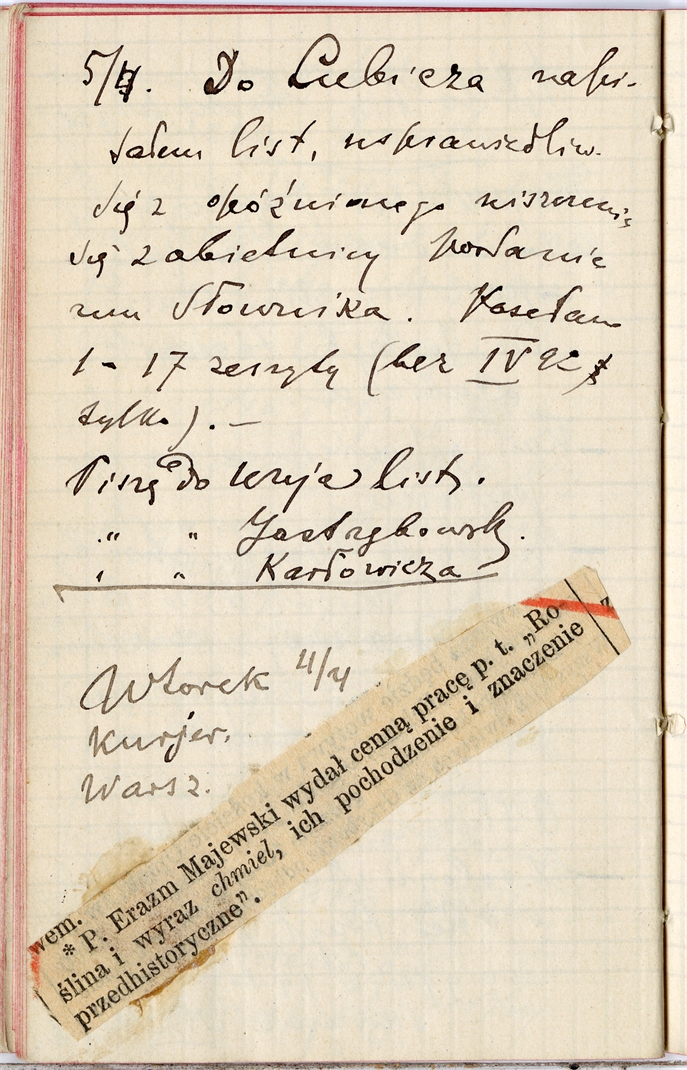 5/4. Do Lubicza napi-
sałem list, usprawiedliw.
się z opóźnionego uiszczenia
się z obietnicy posłania
mu Słownika. Posełam
1 - 17 zeszyty (bez IV
tylko). —
Piszę do wuja list.
„ „ Jastrzębowsk.
i „ Karłowicza
Wtorek 4/4
Kurjer.
Warsz.
wem.
* P. Erazm Majewski wydał cenną pracę p. t. „Ro-
ślina i wyraz chmiel, ich pochodzenie i znaczenie
przedhistoryczne”.
z